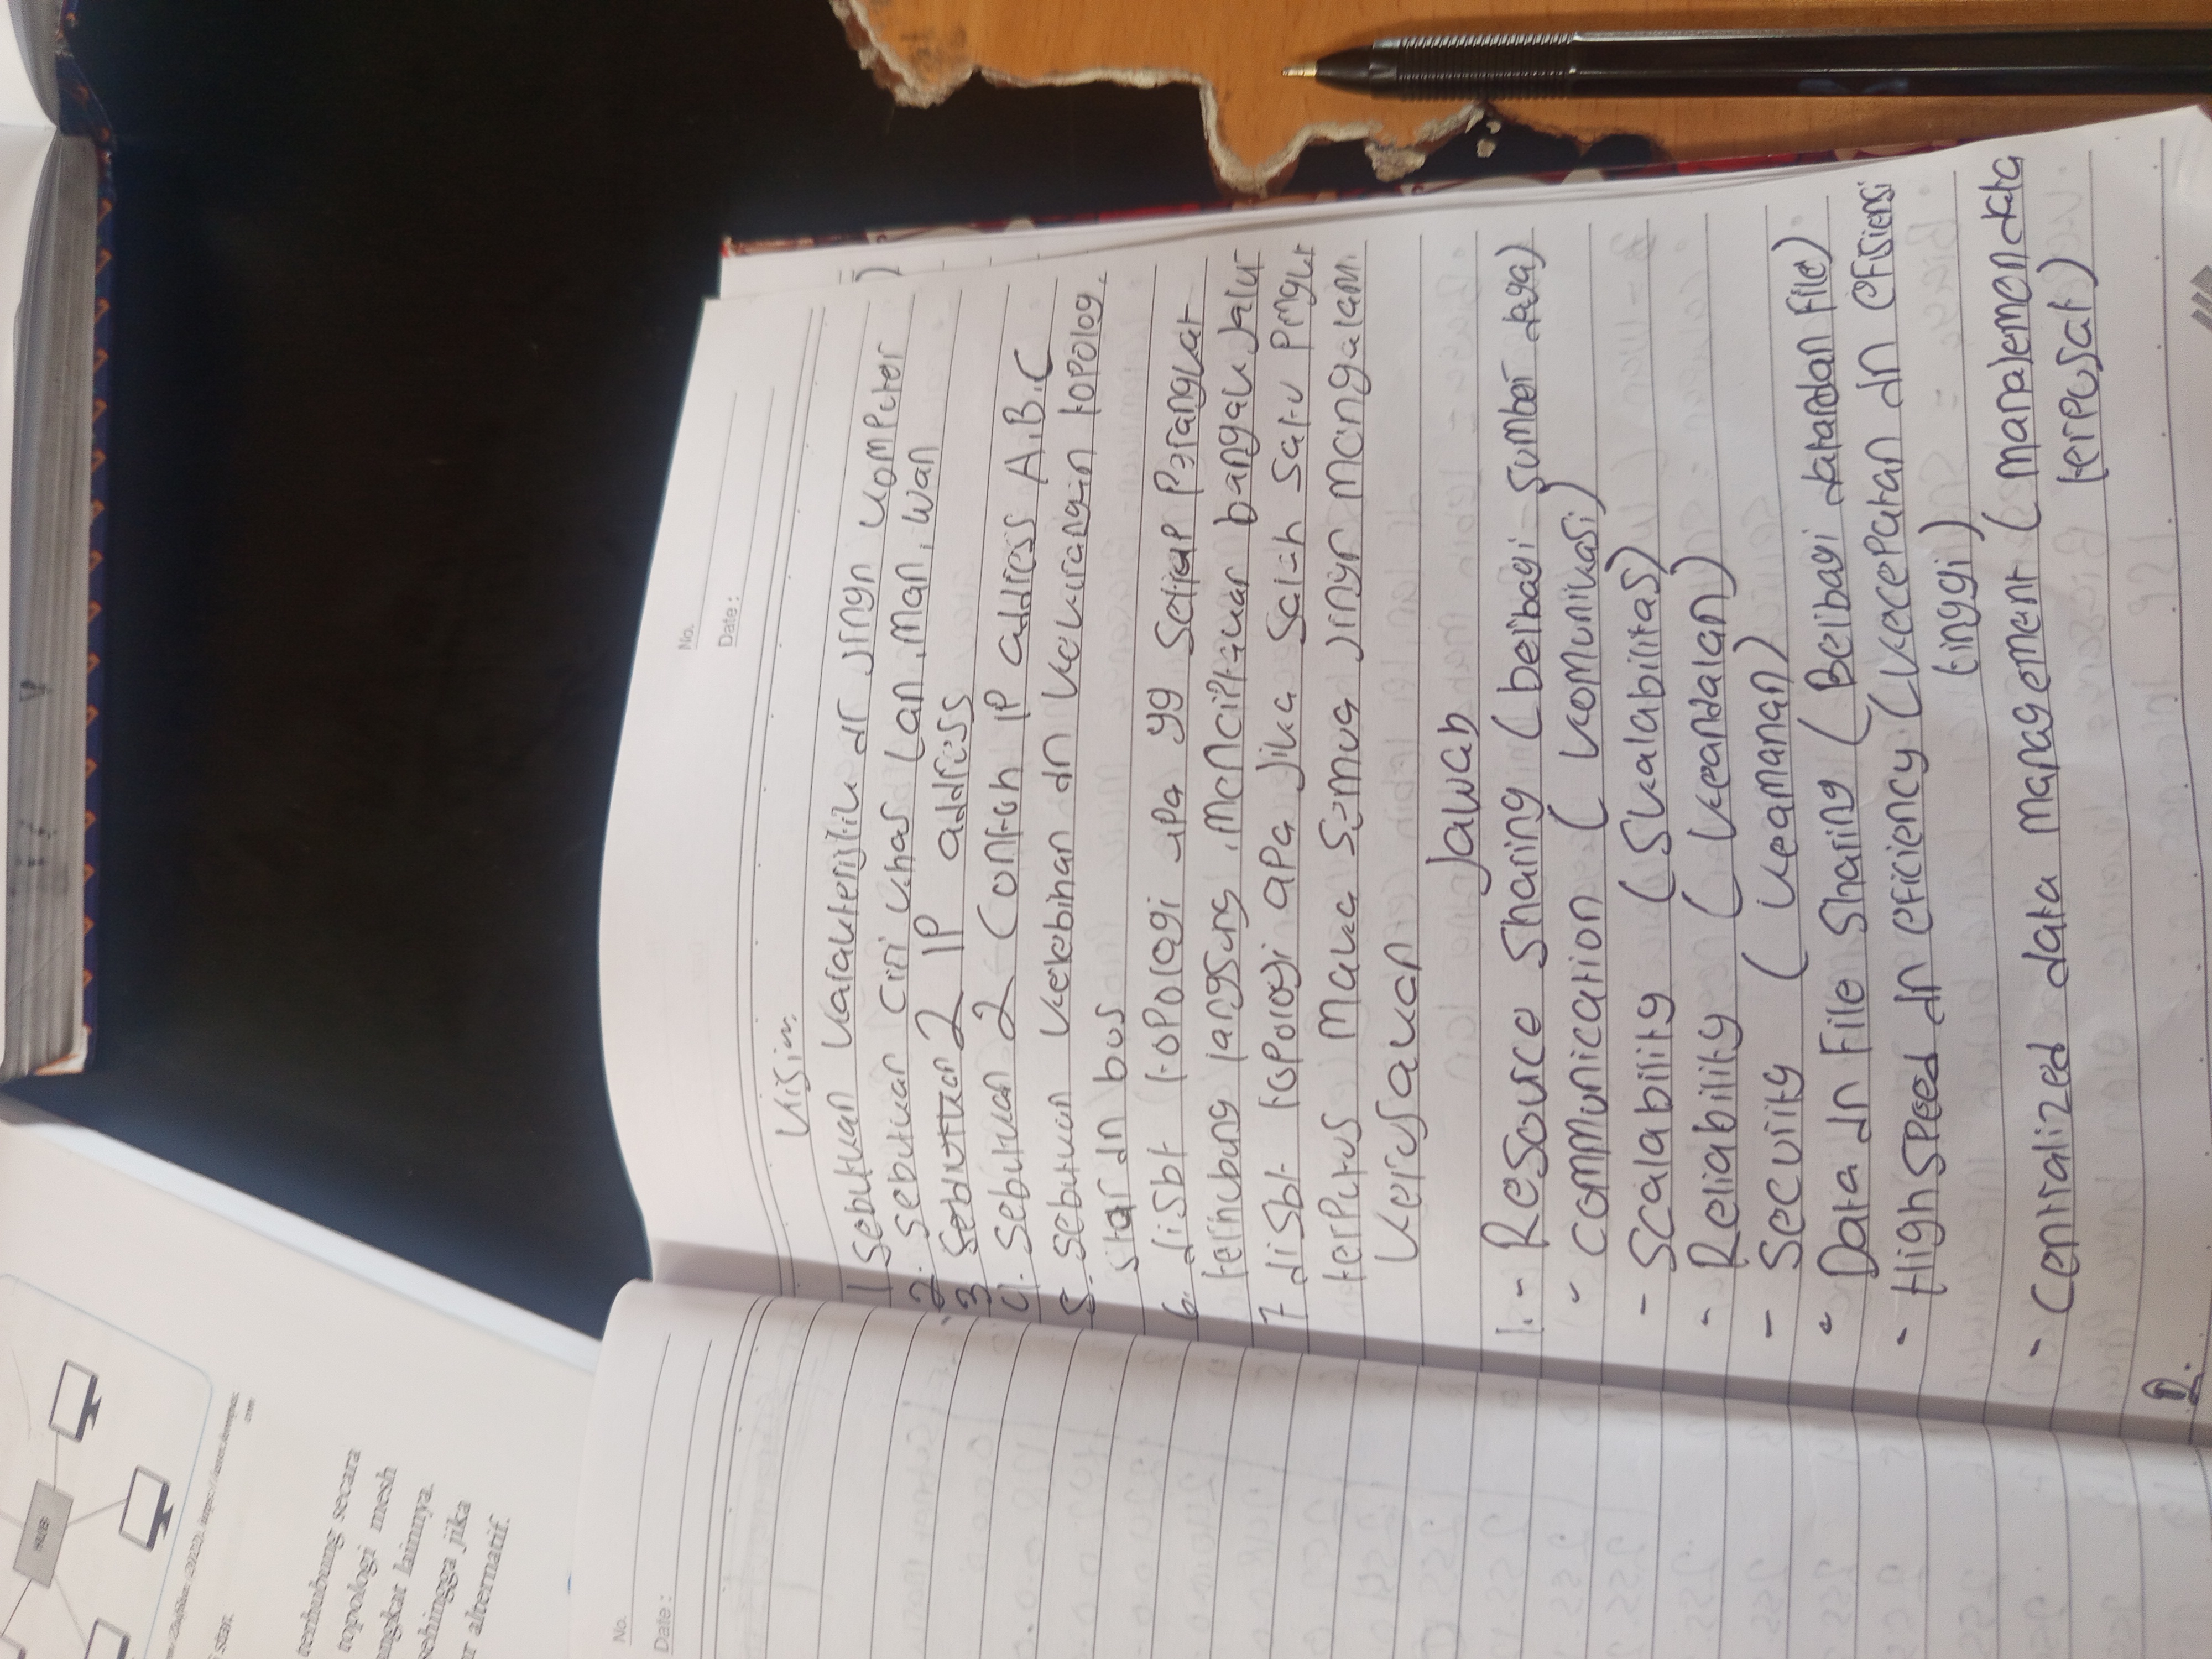 HUB
(2022), https://
com
star.
terhubung secara
topologi mesh
angkat lainnya.
sehingga jika
alternatif.
No.
Date :
No.
Date :
1 Sebutkan karakteristik dr jringn komputer
2. Sebutkan ciri khas Lan, Man, Wan
3 2 IP address
4. Sebutkan 2 Contoh IP address A.B.C
5. Sebutkan kelebihan dn kekurangan topolog
star dn bus
6. disbt topologi apa yg setiap perangkat
terhubung langsung, menciptakan banyak jalur
7 disbt topologi apa jika salah satu
terputus maka semua jringn mengalami
kerusakan
Jawab
1. - Resource Sharing (berbagi sumber daya)
- communication (komunikasi)
- Scalability (Skalabilitas)
- Reliability (keandalan)
- Security (keamanan)
- Data dn File Sharing (Berbagi data dan File)
- High speed dn eficiency (kecepatan dn efisiensi
tinggi)
- Centralized data management (manajemen data
terpusat)
2.